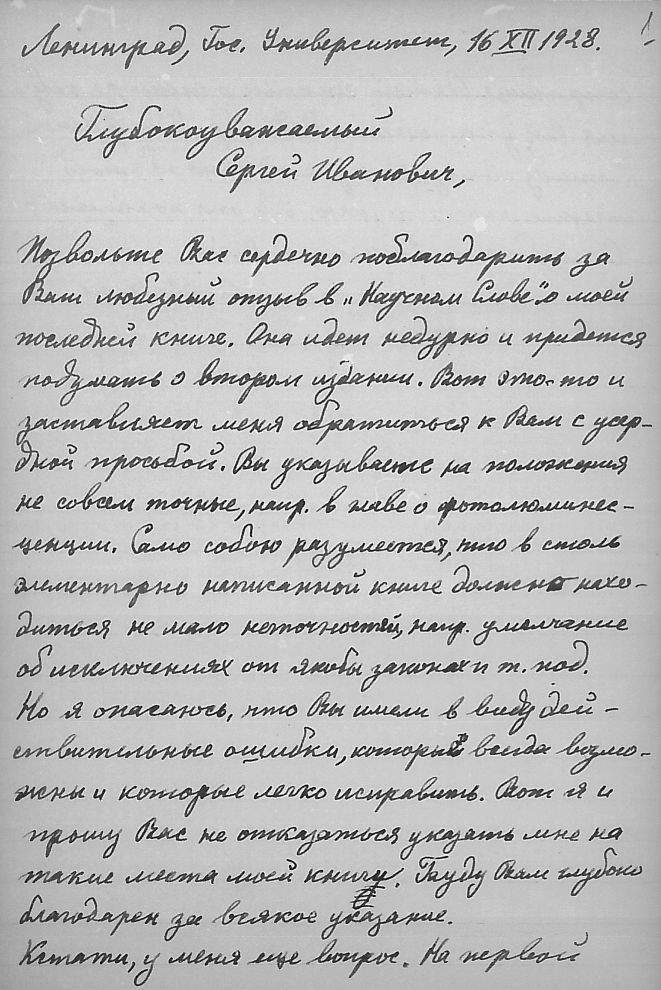 1
Ленинград, Гос. Университет, 16 XII 1928.
Глубокоуважаемый
Сергей Иванович,
Позвольте Вас сердечно поблагодарить за
Ваш любезный отзыв в „Научном Слове" о моей
последней книге. Она идет недурно и придется
подумать о втором издании. Вот это-то и
заставляет меня обратиться к Вам с усер-
дной просьбой. Вы указываете на положения
не совсем точные, напр. в главе о фотолюминес-
ценции. Само собою разумеется, что в столь
элементарно написанной книге должно нахо-
диться не мало неточностей, напр. умолчание
об исключениях от якобы законах и т. под.
Но я опасаюсь, что Вы имели в виду дей-
ствительные ошибки, которые всегда возмо-
жны и которые легко исправить. Вот я и
прошу Вас не отказаться указать мне на
такие места моей книги. Буду Вам глубоко
благодарен за всякое указание.
Кстати, у меня еще вопрос. На первой